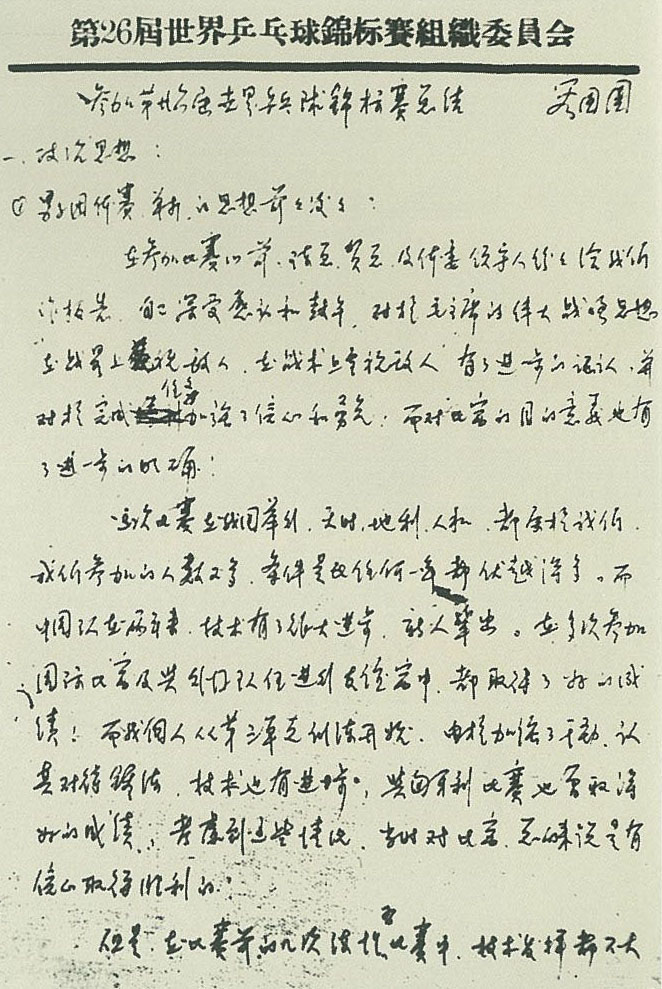 第26屆世界乒乓球錦标賽組織委員会
参加第廿六届世界乒乓球錦标赛总结 容国团
一、政治思想：
① 男子团体赛 单打 的思想前前后后：
在参加比赛以前，陈总、贺总、及体委领导人纷纷给我们
作报告，自己深受感认和鼓午，对於毛主席的伟大战略思想
在战略上藐视敌人，在战术上重视敌人 有了进一步的认认，并
对於完成任务加强了信心和勇气；而对比赛的目的意义也有
了进一步的明确：
这次比赛在我国举行，天时，地利，人和，都属於我们。
我们参加的人数又多，条件是比任何一年都优越得多。而
中国队在两年来，技术有了很大进步，新人辈出。在多次参加
国际比赛及与外来队伍进行友谊赛中，都取得了好的成
绩！而我個人从第三阶段训练开始，由於加强了手动，认
真对待锻练，技术也有进步，与匈牙利比赛也曾取得
好的成绩，考虑到这些情况，当时对比赛，总的来说是有
信心取得胜利的。
但是，在比赛前的几次练习比赛中，技术发挥都不大